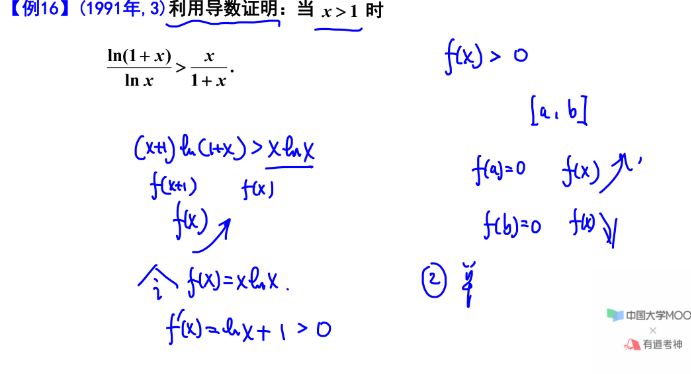 【例16】(1991年,3)利用导数证明：当 x>1 时
ln(1+x)/ln x > x/(1+x).
(x+1)ln(1+x)>xlnx
f(x+1) f(x)
f(x)
令 f(x)=xlnx.
f'(x)=lnx+1>0
f(x)>0
[a,b]
f(a)=0 f(x)
f(b)=0 f(x)
②
中国大学MOO
×
有道考神